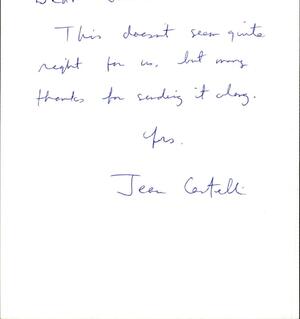 Dear
This doesn't seem quite
right for us, but many
thanks for sending it along.
Yrs.
Jean